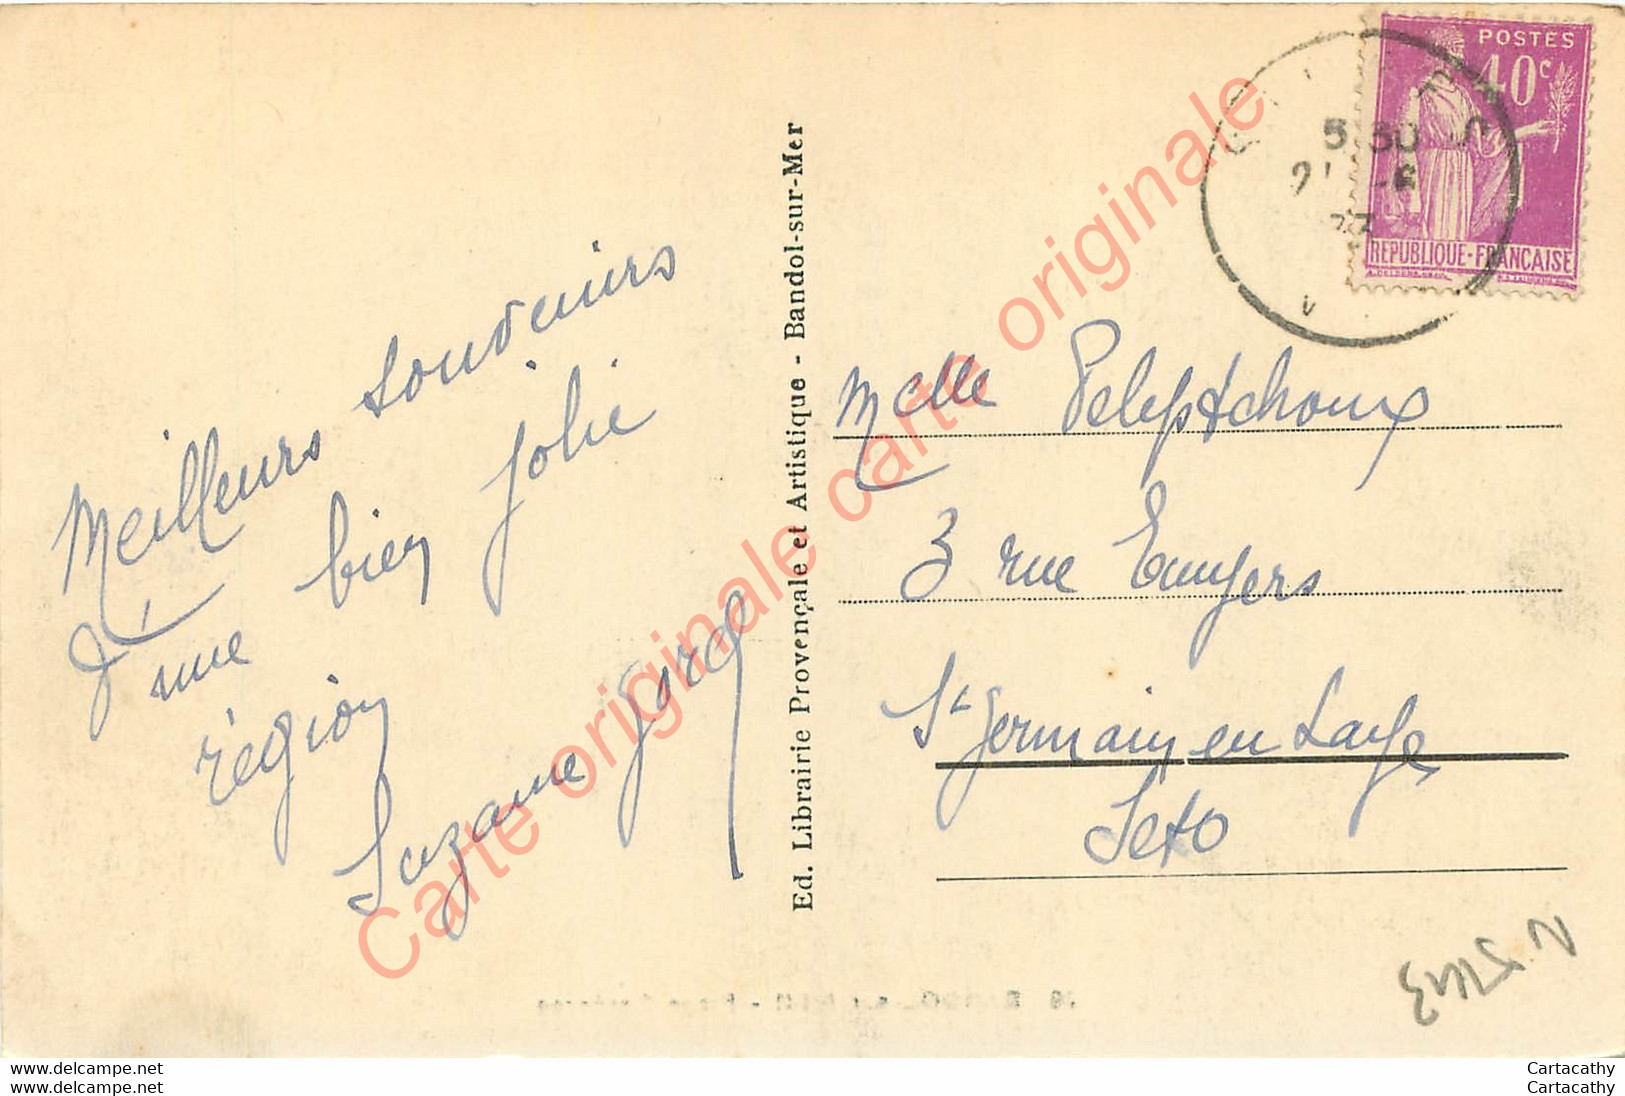 Meilleurs souvenirs
d'une bien jolie
région
Suzanne
Ed. Librairie Provençale et Artistique - Bandol-sur-Mer
POSTES
40c
REPUBLIQUE-FRANÇAISE
5 30
Melle
3 rue
St Germain en Laye
Seto
Carte originale carte originale carte originale
www.delcampe.net
www.delcampe.net
Cartacathy
Cartacathy